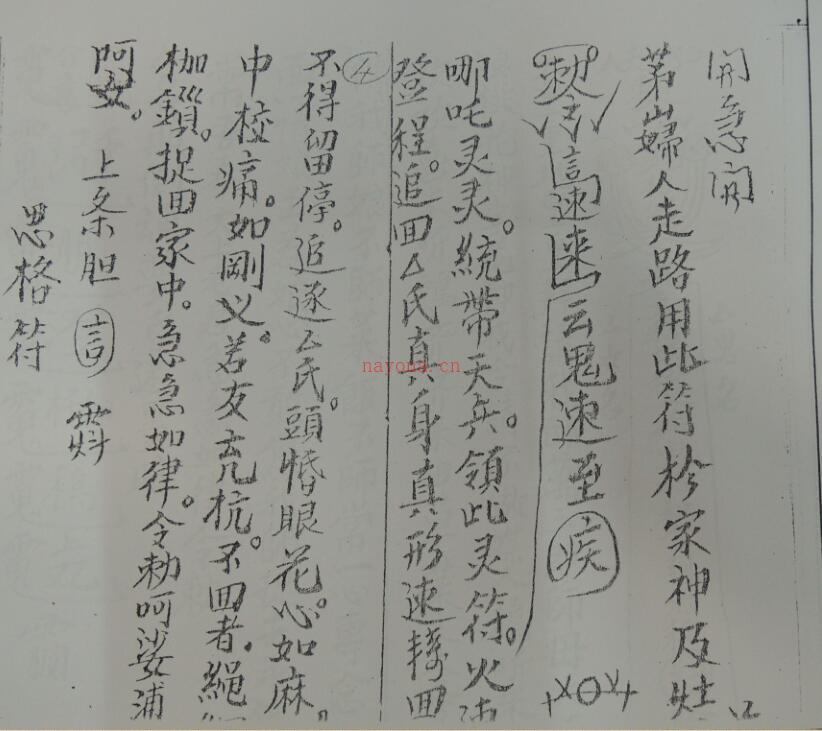 開急開
茅山婦人走路用此符於家神及灶口
勅令言速来云鬼速至疾
哪吒灵灵。統帶天兵。領此灵符。火速
登程。追回厶氏真身真形速轉回
④
不得留停。追逐厶氏。頭昏眼花。心如麻。
中校痛。如剛义。若友亢抗。不回者。繩
枷鎖。捉回家中。急急如律。令勅呵娑浦
阿女。 上条胆 言
思格符
nayona.cn